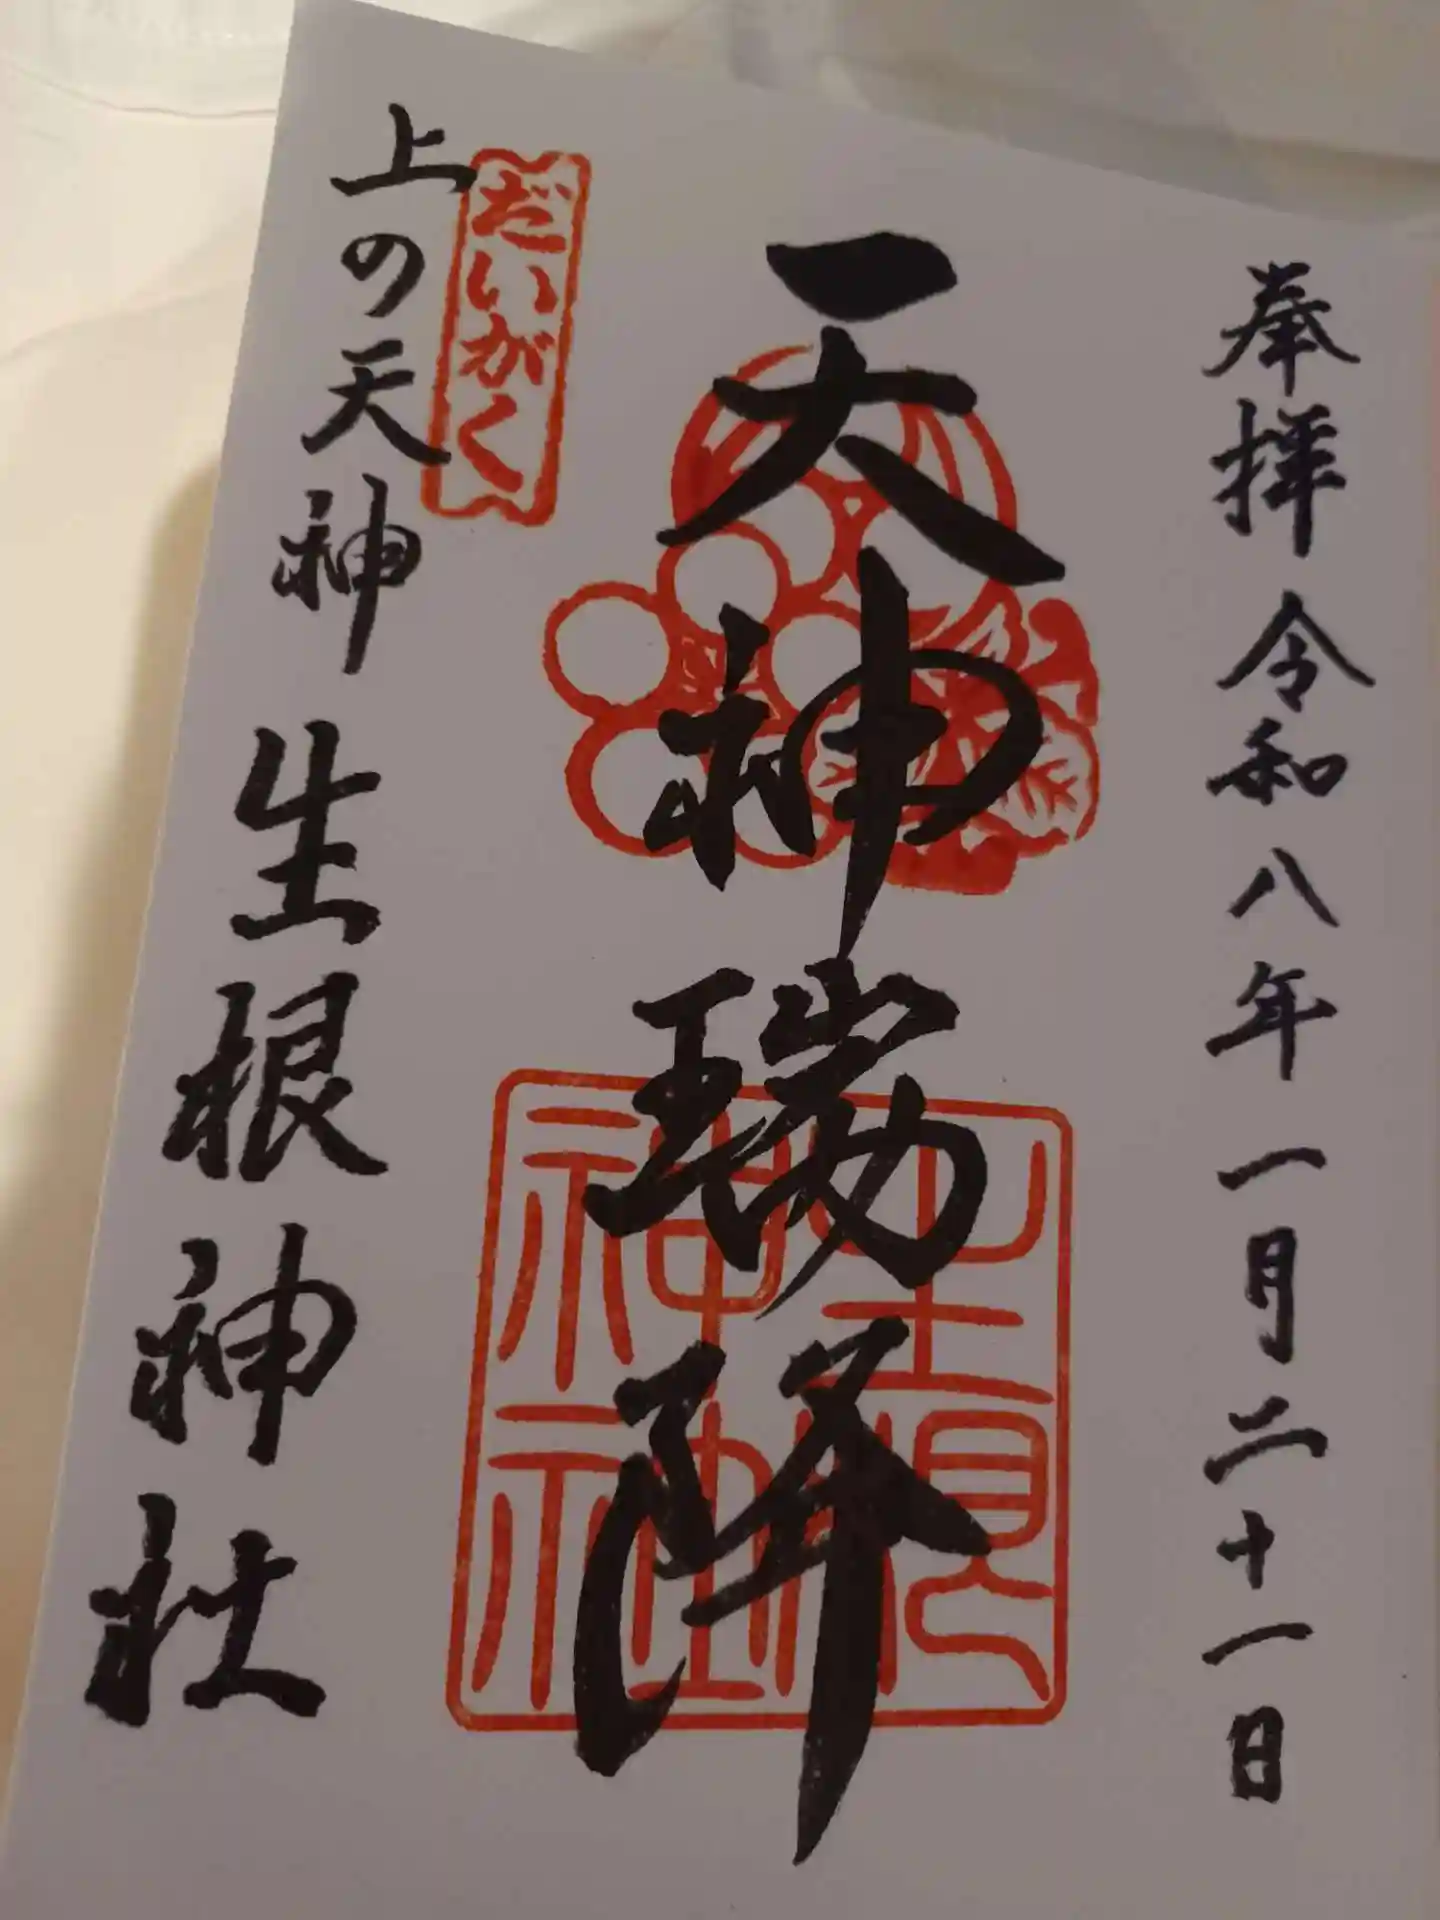 奉拝 令和八年一月二十一日
天神瑞祥
だいがく
上の天神 生根神社
生根神社